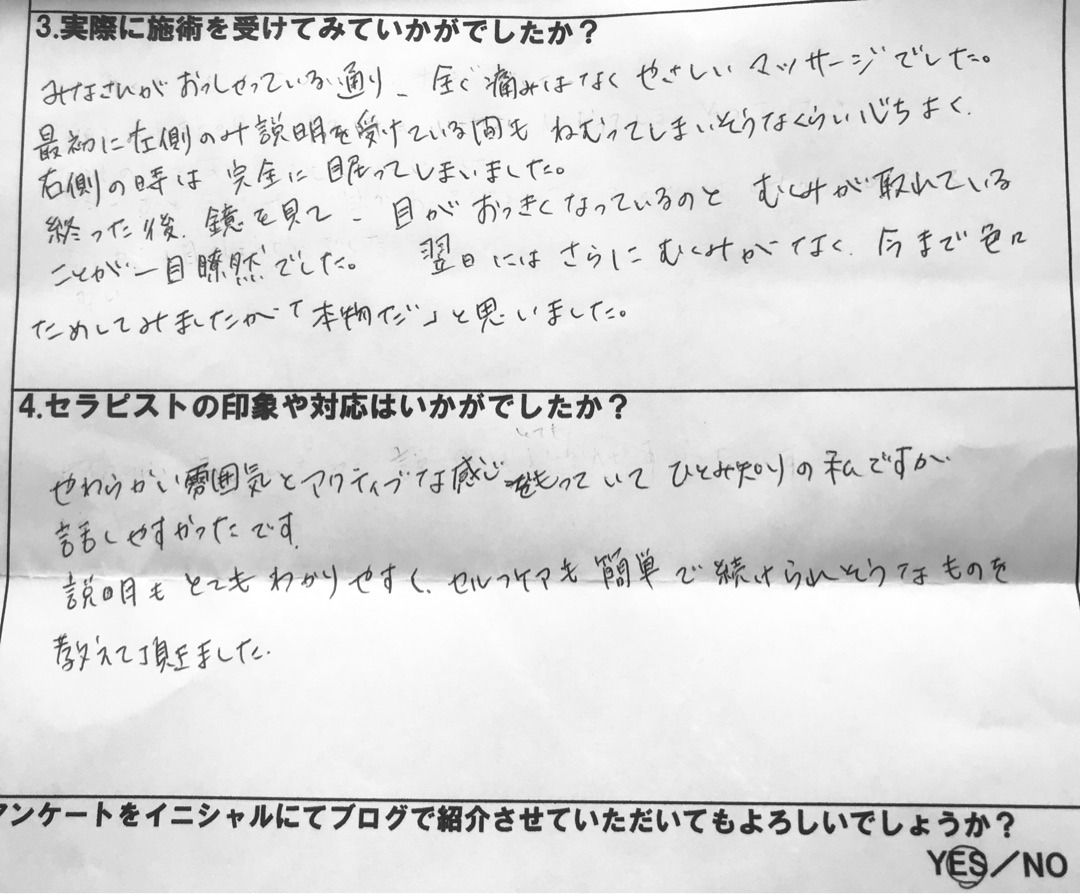 3.実際に施術を受けてみていかがでしたか？
みなさんがおっしゃっている通り、全く痛みはなくやさしいマッサージでした。
最初に左側のみ説明を受けている間もねむってしまいそうなくらい心ちよく、
右側の時は完全に眠ってしまいました。
終った後、鏡を見て、目がおっきくなっているのとむくみが取れている
ことが一目瞭然でした。翌日にはさらにむくみがなく、今まで色々
ためしてみましたが「本物だ」と思いました。
4.セラピストの印象や対応はいかがでしたか？
やわらかい雰囲気とアクティブな感じをもっていてひとみ知りの私ですが、
話しやすかったです。
説明もとてもわかりやすく、セルフケアも簡単で続けられそうなものを
教えて頂きました。
ンケートをイニシャルにてブログで紹介させていただいてもよろしいでしょうか？
YES／NO